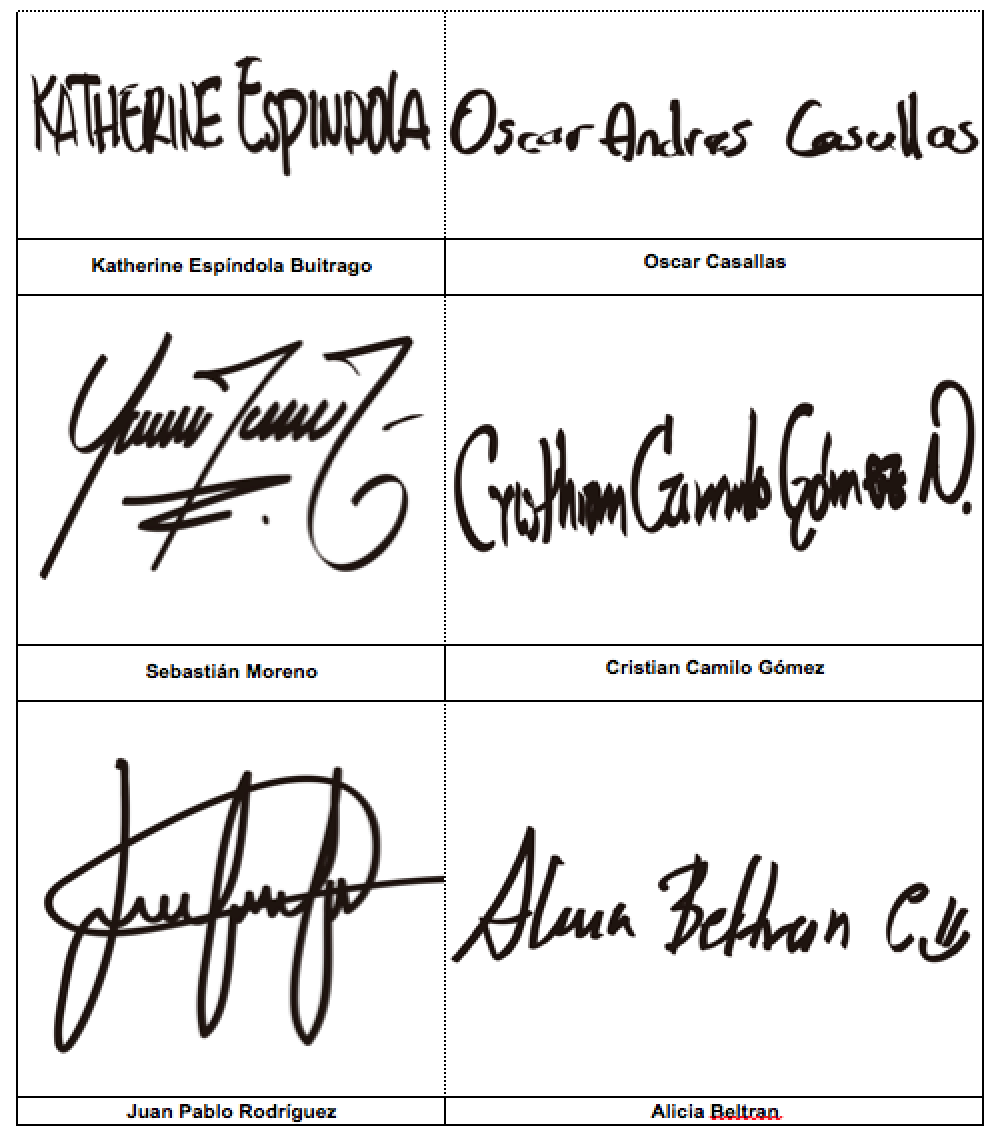 KATHERINE ESPINDOLA
Oscar Andres Casallas
Katherine Espíndola Buitrago
Oscar Casallas
Cristhiam Camilo Gómez N.
Sebastián Moreno
Cristian Camilo Gómez
Beltran C
Juan Pablo Rodríguez
Alicia Beltran